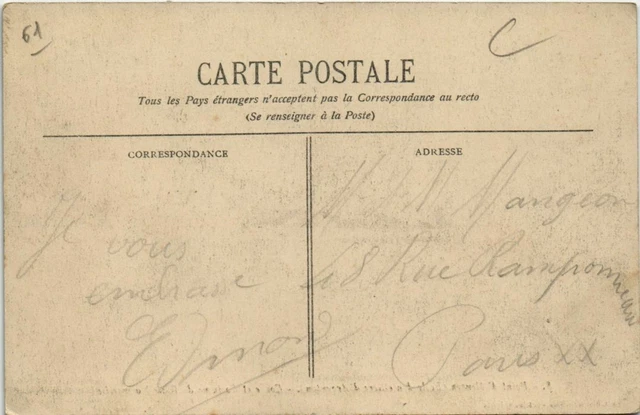 61
C
CARTE POSTALE
Tous les Pays étrangers n'acceptent pas la Correspondance au recto
(Se renseigner à la Poste)
CORRESPONDANCE
ADRESSE
Je vous
embrasse
Edmond
Mangeon
48 Rue Ramponneau
Paris XX